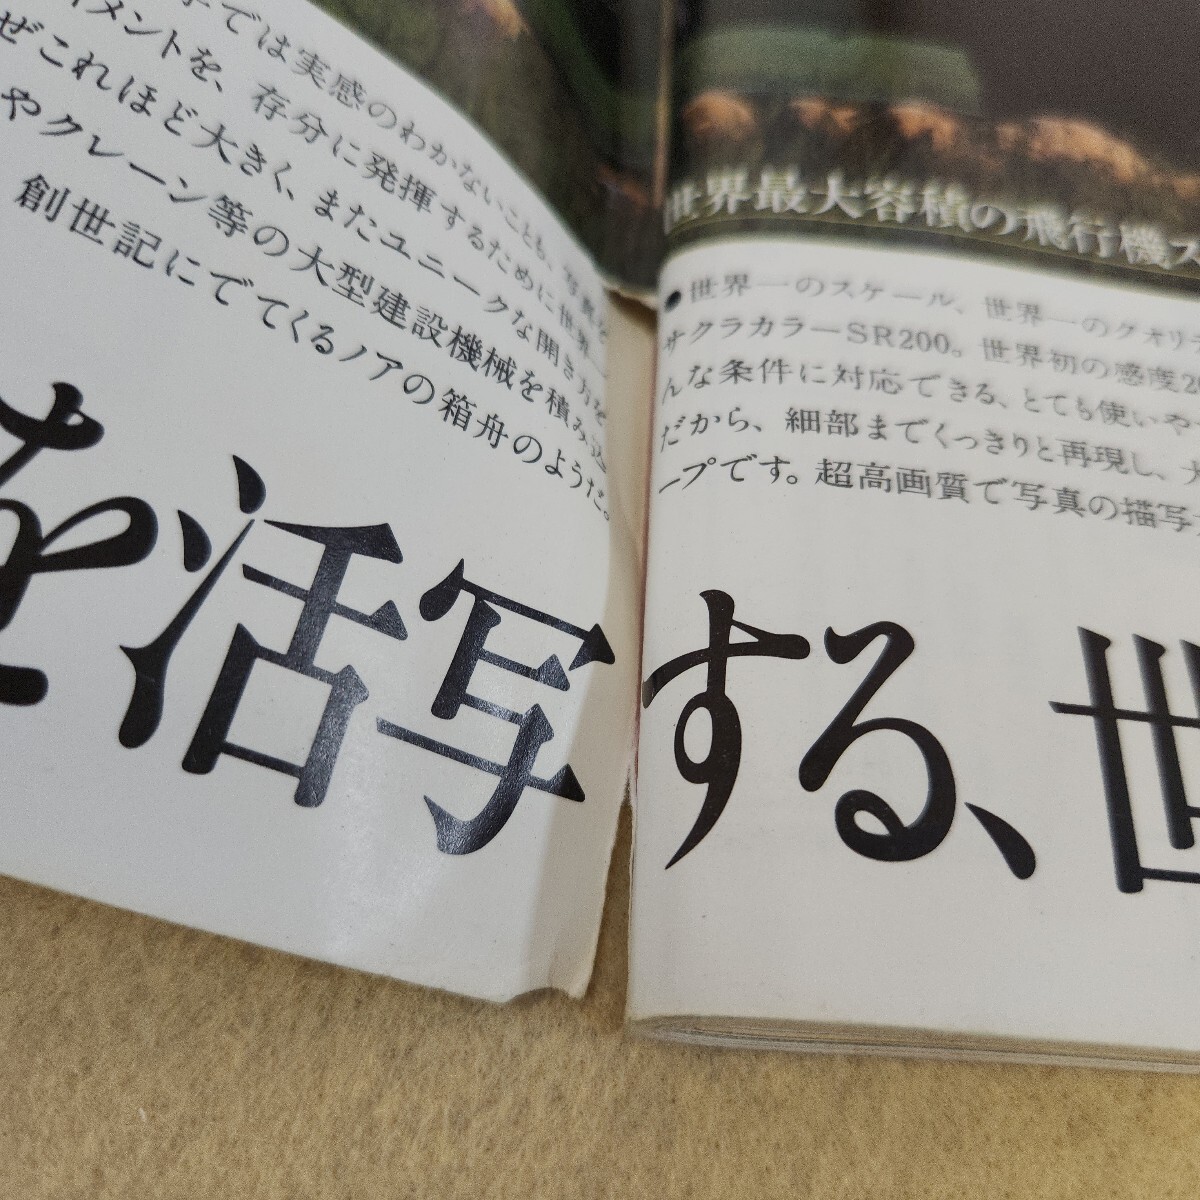 では実感のわかないことも、写真を
イメントを、存分に発揮するために世界一
ぜこれほど大きく、またユニークな開き方を
やクレーン等の大型建設機械を積み込
創世記にでてくるノアの箱舟のようだ。
世界最大容積の飛行機ス
●世界一のスケール、世界一のクオリテ
サクラカラーSR200。世界初の感度20
んな条件に対応できる、とても使いや
だから、細部までくっきりと再現し、大
ープです。超高画質で写真の描写
を活写する、世